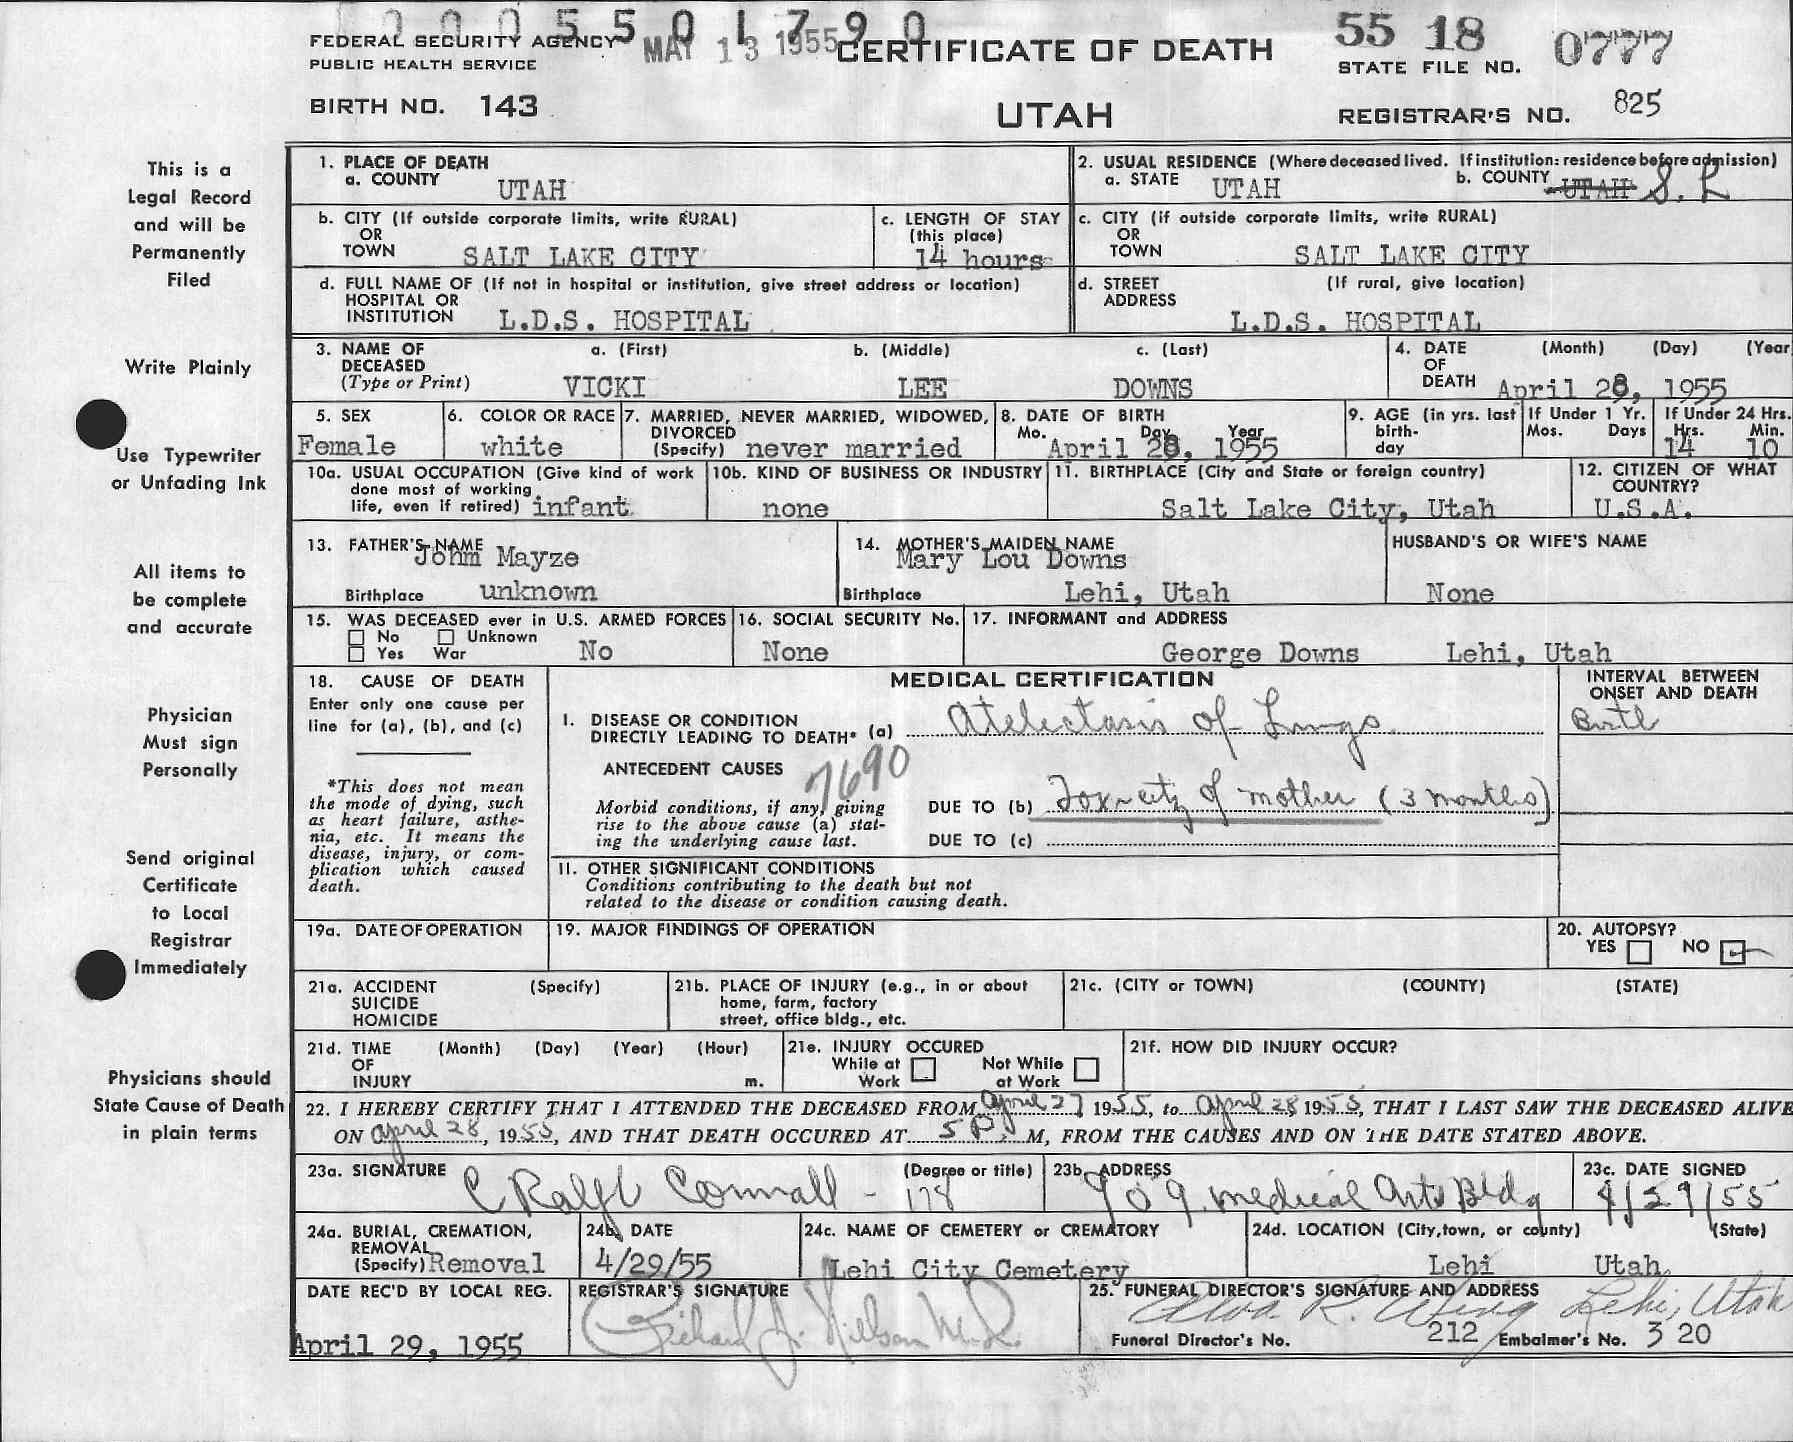 0005501790
FEDERAL SECURITY AGENCY MAY 13 1955 CERTIFICATE OF DEATH 55 18 0777
PUBLIC HEALTH SERVICE STATE FILE NO.
BIRTH NO. 143 UTAH REGISTRAR'S NO. 825
This is a
Legal Record
and will be
Permanently
Filed
Write Plainly
Use Typewriter
or Unfading Ink
All items to
be complete
and accurate
Physician
Must sign
Personally
Send original
Certificate
to Local
Registrar
Immediately
Physicians should
State Cause of Death
in plain terms
1. PLACE OF DEATH
a. COUNTY UTAH
2. USUAL RESIDENCE (Where deceased lived. If institution: residence before admission)
a. STATE UTAH b. COUNTY UTAH S. L
b. CITY (If outside corporate limits, write RURAL)
OR
TOWN SALT LAKE CITY
c. LENGTH OF STAY
(this place)
14 hours
c. CITY (if outside corporate limits, write RURAL)
OR
TOWN SALT LAKE CITY
d. FULL NAME OF (If not in hospital or institution, give street address or location)
HOSPITAL OR
INSTITUTION L.D.S. HOSPITAL
d. STREET (If rural, give location)
ADDRESS
L.D.S. HOSPITAL
3. NAME OF a. (First) b. (Middle) c. (Last)
DECEASED
(Type or Print) VICKI LEE DOWNS
4. DATE (Month) (Day) (Year
OF
DEATH April 28, 1955
5. SEX
Female
6. COLOR OR RACE
white
7. MARRIED, NEVER MARRIED, WIDOWED,
DIVORCED
(Specify) never married
8. DATE OF BIRTH
Mo. Day Year
April 28, 1955
9. AGE (in yrs. last
birth-
day
If Under 1 Yr.
Mos. Days
If Under 24 Hrs.
Hrs. Min.
14 10
10a. USUAL OCCUPATION (Give kind of work
done most of working
life, even if retired) infant
10b. KIND OF BUSINESS OR INDUSTRY
none
11. BIRTHPLACE (City and State or foreign country)
Salt Lake City, Utah
12. CITIZEN OF WHAT
COUNTRY?
U.S.A.
13. FATHER'S NAME
John Mayze
Birthplace unknown
14. MOTHER'S MAIDEN NAME
Mary Lou Downs
Birthplace Lehi, Utah
HUSBAND'S OR WIFE'S NAME
None
15. WAS DECEASED ever in U.S. ARMED FORCES
No Unknown
Yes War No
16. SOCIAL SECURITY No.
None
17. INFORMANT and ADDRESS
George Downs Lehi, Utah
18. CAUSE OF DEATH
Enter only one cause per
line for (a), (b), and (c)
*This does not mean
the mode of dying, such
as heart failure, asthe-
nia, etc. It means the
disease, injury, or com-
plication which caused
death.
MEDICAL CERTIFICATION
INTERVAL BETWEEN
ONSET AND DEATH
I. DISEASE OR CONDITION
DIRECTLY LEADING TO DEATH* (a) Atelectasis of Lungs Birth
ANTECEDENT CAUSES 7690
Morbid conditions, if any, giving
rise to the above cause (a) stat-
ing the underlying cause last.
DUE TO (b) Toxicity of mother (3 months)
DUE TO (c)
II. OTHER SIGNIFICANT CONDITIONS
Conditions contributing to the death but not
related to the disease or condition causing death.
19a. DATE OF OPERATION
19. MAJOR FINDINGS OF OPERATION
20. AUTOPSY?
YES NO
21a. ACCIDENT (Specify)
SUICIDE
HOMICIDE
21b. PLACE OF INJURY (e.g., in or about
home, farm, factory
street, office bldg., etc.
21c. (CITY or TOWN) (COUNTY) (STATE)
21d. TIME (Month) (Day) (Year) (Hour)
OF
INJURY m.
21e. INJURY OCCURED
While at Not While
Work at Work
21f. HOW DID INJURY OCCUR?
22. I HEREBY CERTIFY THAT I ATTENDED THE DECEASED FROM April 27 1955, to April 28 1955, THAT I LAST SAW THE DECEASED ALIVE
ON April 28, 1955, AND THAT DEATH OCCURED AT 5 P. M, FROM THE CAUSES AND ON THE DATE STATED ABOVE.
23a. SIGNATURE (Degree or title)
C Ralph Cornwall
23b. ADDRESS
709 Medical Arts Bldg
23c. DATE SIGNED
4/29/55
24a. BURIAL, CREMATION,
REMOVAL
(Specify) Removal
24b. DATE
4/29/55
24c. NAME OF CEMETERY or CREMATORY
Lehi City Cemetery
24d. LOCATION (City, town, or county) (State)
Lehi Utah
DATE REC'D BY LOCAL REG.
April 29, 1955
REGISTRAR'S SIGNATURE
Richard J. Nielson M.D.
25. FUNERAL DIRECTOR'S SIGNATURE AND ADDRESS
Alva R. Wing Lehi, Utah
Funeral Director's No. 212 Embalmer's No. 320